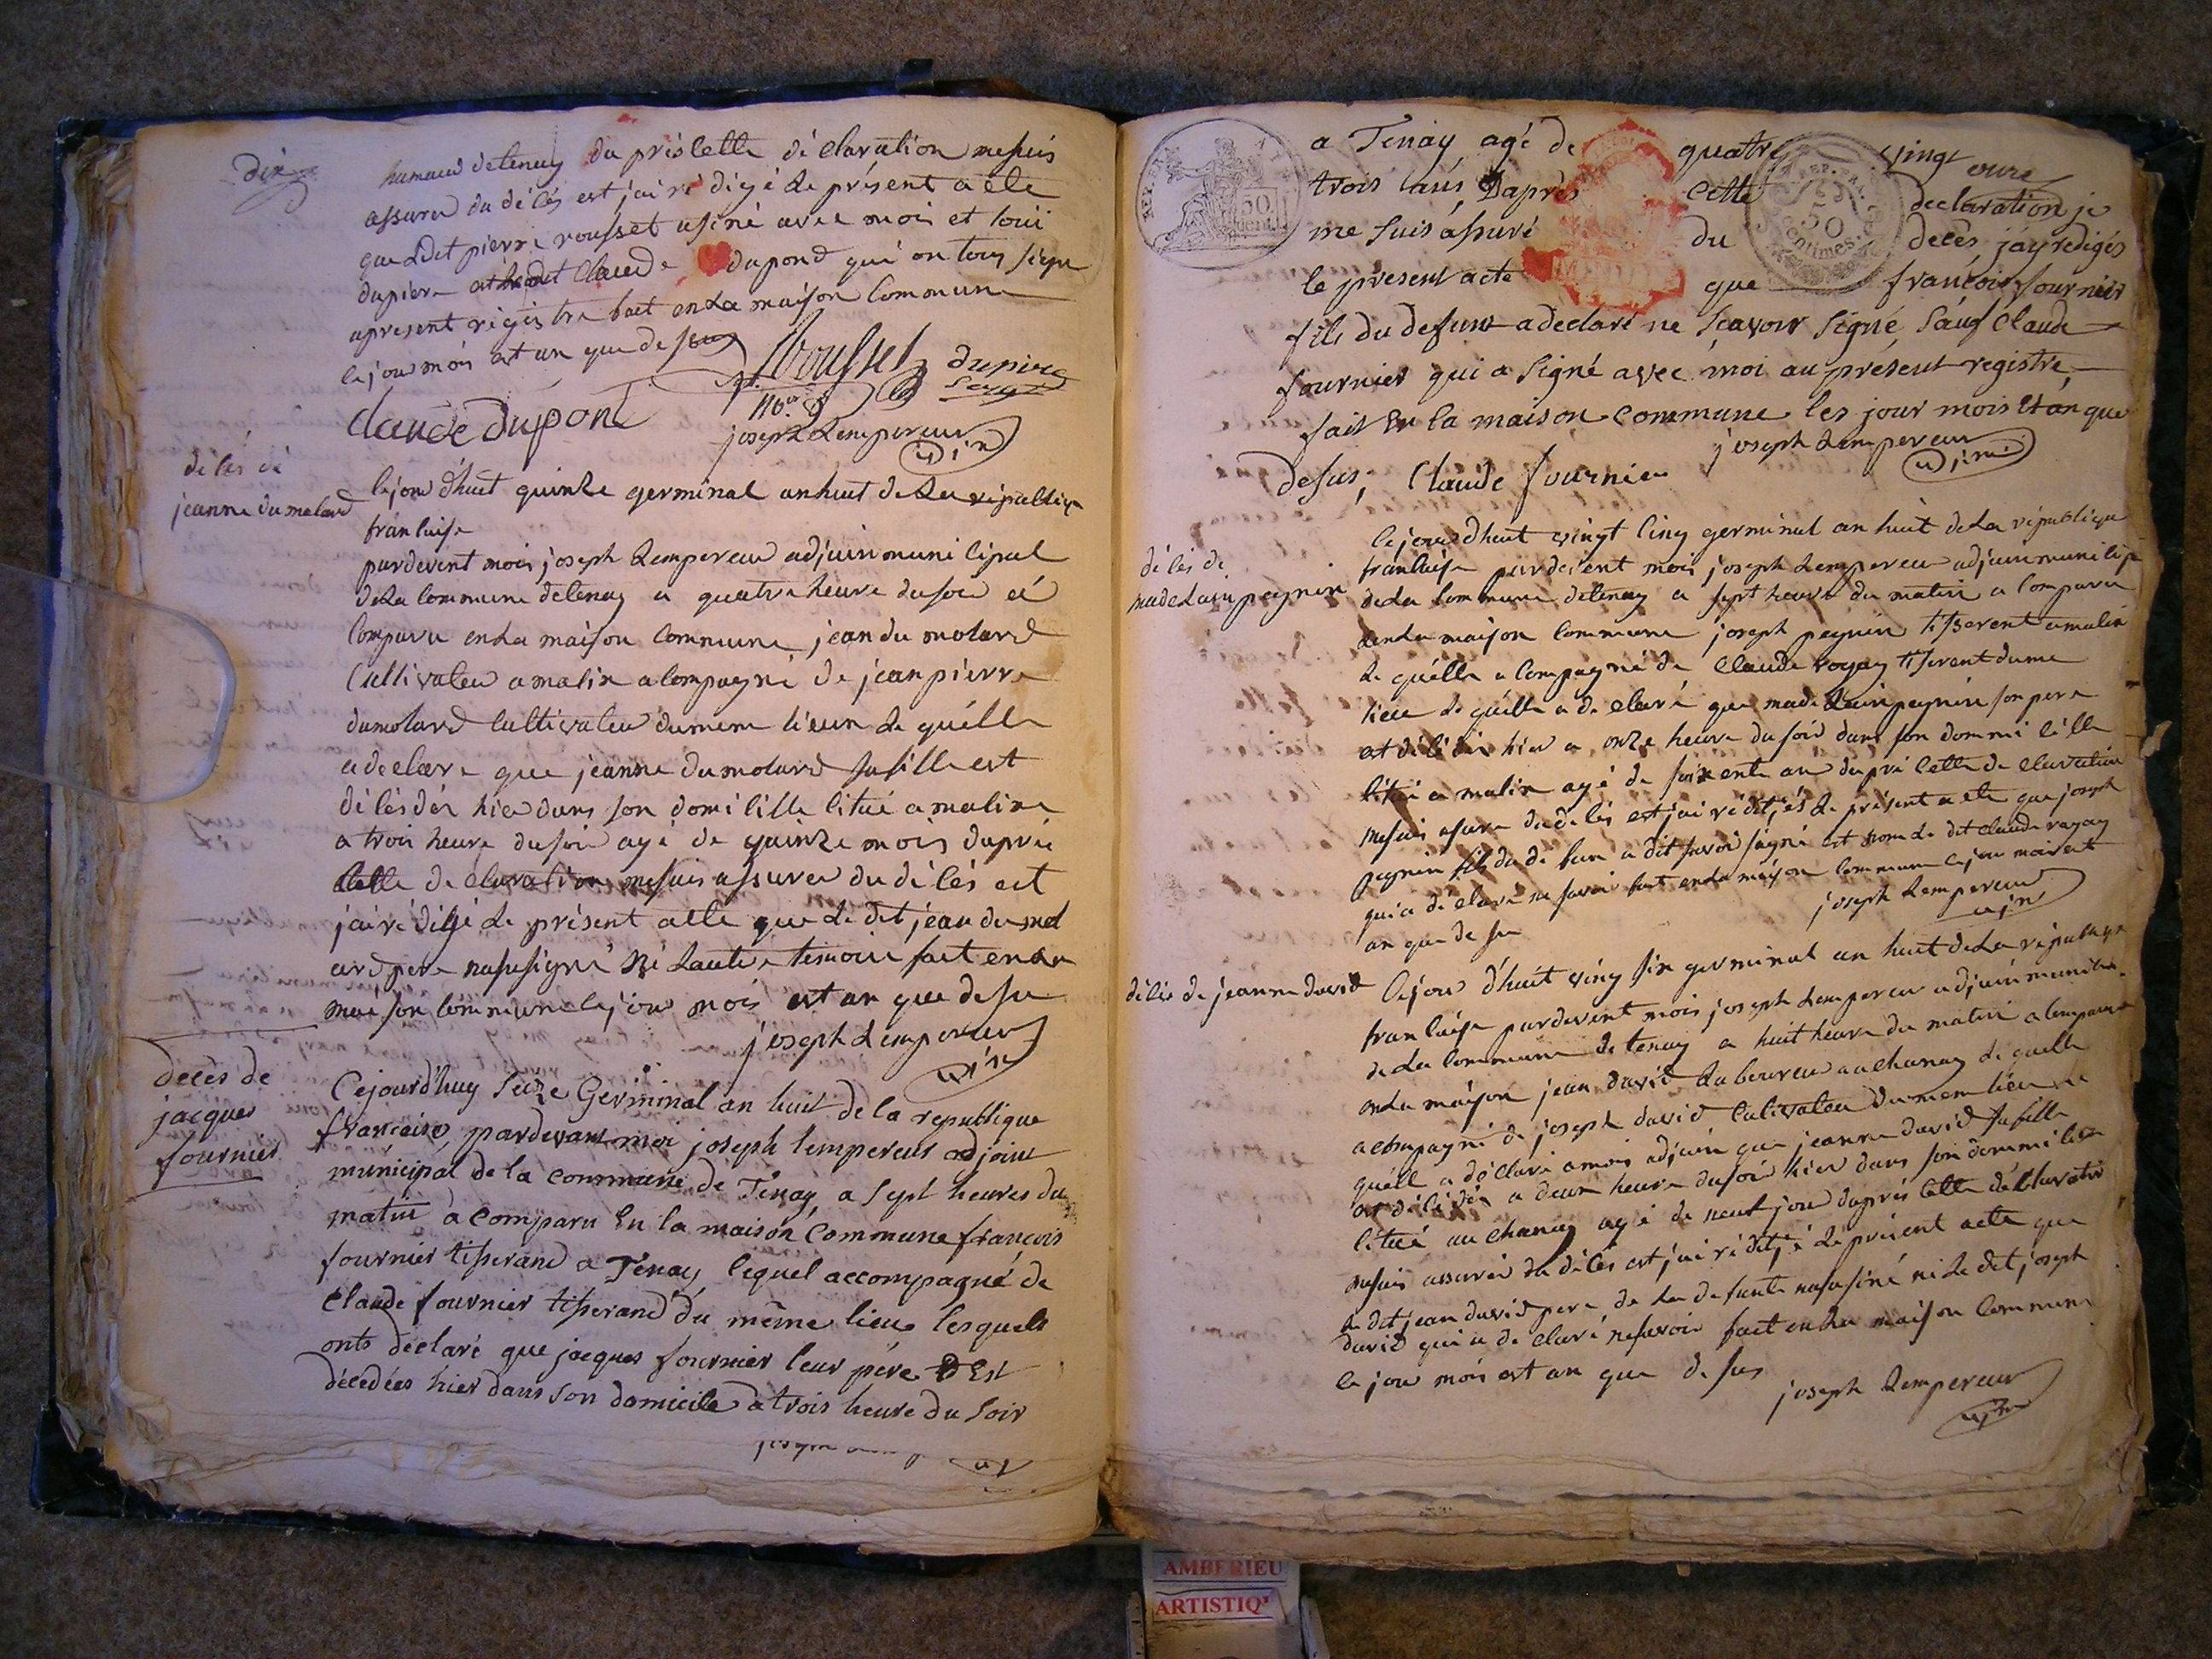 dix
hameau detenay du pris cette dé claration mesuis
assurer du délés est jai ré digé le présent acte
que ledit pierre rousset asiné avec mois et loui
dupiere et ledit Claude dupond qui on tous signe
apresent régistre fait enla maison Commune
lejour mois est un que desus
Rousset dupiere
Claude dupont
joseph Lempereur
adjin
délés de
jeanne dumolard
lejour d'huit quinze germinal an huit dela république
franlaise
pardevent mois joseph Lempereur adjuin muni lipal
dela Commune detenay a quatre heure dusoir a
Comparu enla maison Commune jean du molard
Cultivateur a malix acompagné de jean pierre
dumolard Cultivateur dumeme lieux le quélle
adeclare que jeanne dumolard safille est
délésdés hier dans son domi lille litué a malix
a trois heure dusoir agé de quinze mois duprés
Cette declaration mesuis assurer du délés est
jai ré digé le présent acte que le dit jean du mol
ard pere nasusigné Né lautre temoin fait enla
maison Commune lejour mois est an que desu
joseph Lempereur
ajin
décès de
jacques
fournier
Cejourd'huy Seize Germinal an huit de la republique
francaise, pardevant moi joseph lempereur adjoint
municipal de la commune de Tenay, a Sept heures du
matin à comparu En la maison Commune françois
fournier tisserand a Tenay, lequel accompagné de
Claude fournier tisserand du même lieu lesquels
onts déclaré que jacques fournier leur pére Est
décédées hier dans Son domicile a trois heure du Soir
a Tenay agé de quatre vingt
trois ans, Daprès cette declaration je
me Suis assuré du decès, jay redigés
le présent acte que françois fournier
fils du defunt a declaré ne Scavoir Signé, Sauf Claude
fournier qui a Signé avec moi au présent registre,
fait En la maison Commune les jour mois et an que
desus, Claude fournier
joseph Lempereur
adjin
délés de
madelain peynin
lejour d'huit vingt cinq germinal an huit dela république
franlaise pardevent mois joseph Lempereur adjuin muni lip
dela Commune detenay a sept heure du matin a Comparu
enla maison Commune joseph peynin tisserent a malix
le quélle a Compagné de Claude royay tiserent dume
lieu le quélle a de claré que made lain peynin son pere
est délédé hier a onze heure du soir dans son dommi lille
litué a malix agé de soixente an du pré Cette de claration
mesuis assure du délés est jai ré dijés le présent a cte que joseph
peynin fils du de funt a dit savoir signé est nom le dit claude rayay
qui a dé claré ne savoir fait enla maison Commune lejour mois et
an que de su
joseph Lempereur
ajin
délés de jeanne david
lejour d'huit ving six germinal an huit dela républiqe
franlaise pardevent mois joseph Lempereur adjuin munilip
dela Commune detenay a huit heure du matin a Comparu
enla maison jean david Laboureur au chanay le quelle
acompagné de joseph david Culivateur dumeme lieu le
quéll a déclaré a mois adjuin que jeanne david sa fille
est délédé a deux heure dusoir hier dans son dommi lille
litué au chanay agé de neuf jour duprés Cette déclaration
mesuis assurer du délés est jai ré dijé le présent acte que
le dit jean david pere de la de funte nasusiné ni le dit joseph
david qui a de claré nesavoir fait enla maison Commune
le jour mois est an que de sus
joseph Lempereur
ajin
REP. FRA.
50
Centimes.
AMBERIEU
ARTISTIQ'